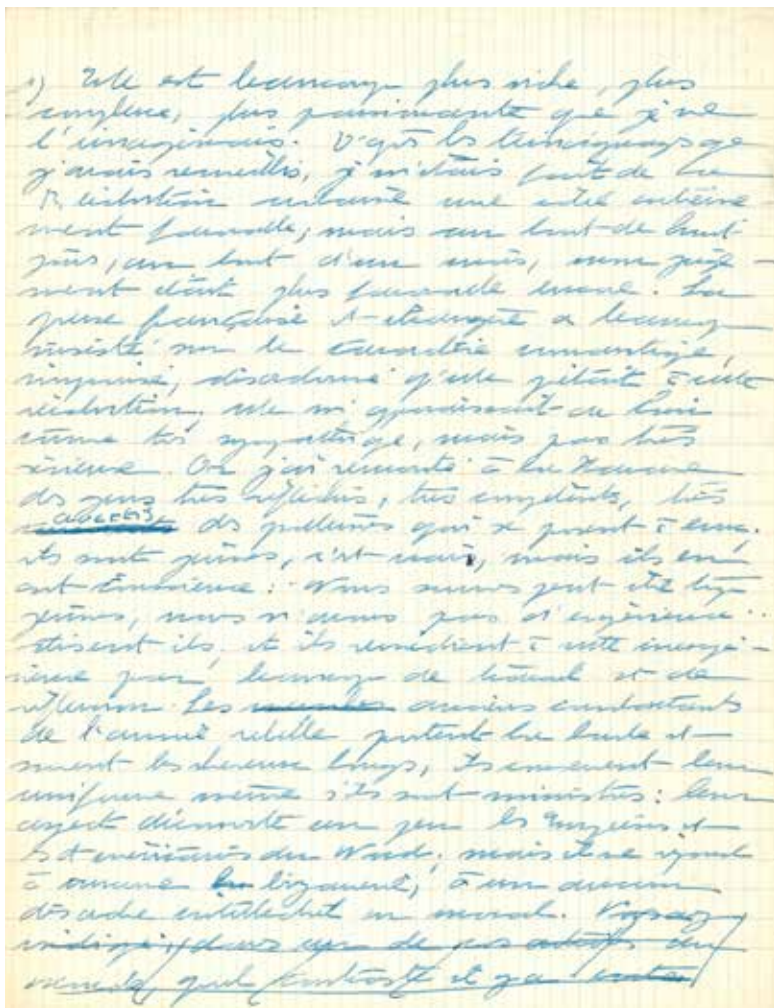 1) Elle est beaucoup plus riche, plus
complexe, plus passionnante que je ne
l'imaginais. D'après les témoignages que
j'avais recueillis, je m'étais fait de la
Révolution cubaine une idée entière-
ment favorable, mais au bout de huit
jours, au bout d'un mois, mon juge-
ment était plus favorable encore. La
presse française et étrangère a beaucoup
insisté sur le caractère romantique,
improvisé, désordonné qu'elle prêtait à cette
révolution; elle m'apparaissait de loin
comme très sympathique, mais pas très
sérieuse. Or j'ai rencontré à La Havane
des gens très réfléchis, très compétents, très
avertis des problèmes qui se posent à eux;
ils sont jeunes, c'est vrai, mais ils en
ont conscience: Nous sommes peut-être trop
jeunes, nous n'avons pas d'expérience..
disent-ils, et ils remédient à cette inexpé-
rience par beaucoup de travail et de
réflexion. Les anciens combattants
de l'armée rebelle portent la barbe et
souvent les cheveux longs, ils conservent leur
uniforme même s'ils sont ministres: leur
aspect déconcerte un peu les Européens et
les Américains du Nord; mais il ne répond
à aucune bizarrerie, à aucun
désordre intellectuel ou moral.
quel contraste il y a